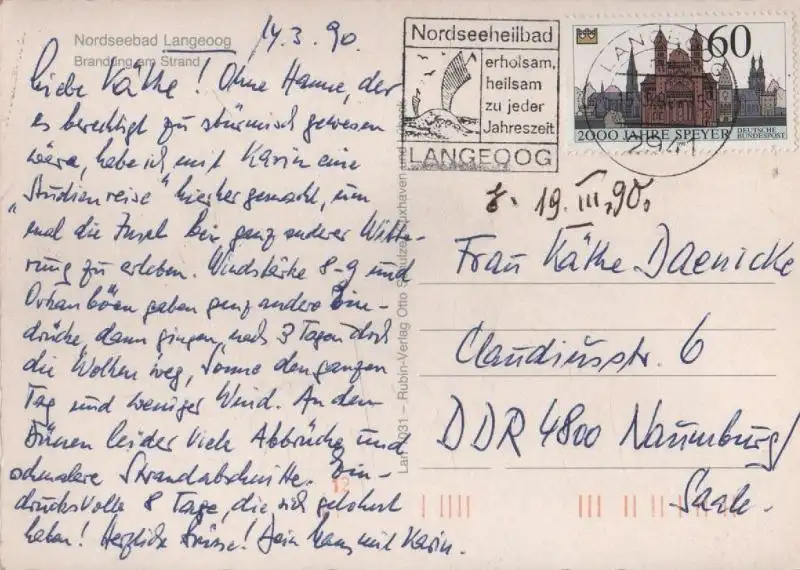 Nordseebad Langeoog
Brandung am Strand
14.3.90.
Liebe Käthe! Ohne Hanne, der
es berechtigt zu stürmisch gewesen
wäre, habe ich mit Karin eine
"Studienreise" hierher gemacht, um
mal die Insel bei ganz anderer Witte-
rung zu erleben. Windstärke 8-9 und
Orkanböen gaben ganz andere Ein-
drücke, dann gingen nach 3 Tagen doch
die Wolken weg, Sonne den ganzen
Tag und weniger Wind. An den
Dünen leider viele Abbrüche und
schmalere Strandabschnitte. Ein-
drucksvolle 8 Tage, die sich gelohnt
haben! Herzliche Grüsse! Dein Hans mit Karin.
Nordseeheilbad
erholsam,
heilsam
zu jeder
Jahreszeit
LANGEOOG
60
LANGEOOG
2941
2000 JAHRE SPEYER
DEUTSCHE BUNDESPOST
19.III.90.
Frau Käthe Daenicke
Claudiusstr. 6
DDR 4800 Naumburg/
Saale.
Rubin-Verlag Otto Schulze, Cuxhaven und
12